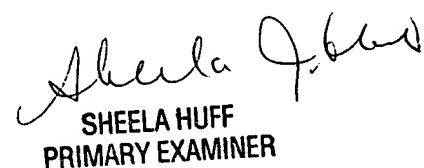 Sheela J. Huff
SHEELA HUFF
PRIMARY EXAMINER